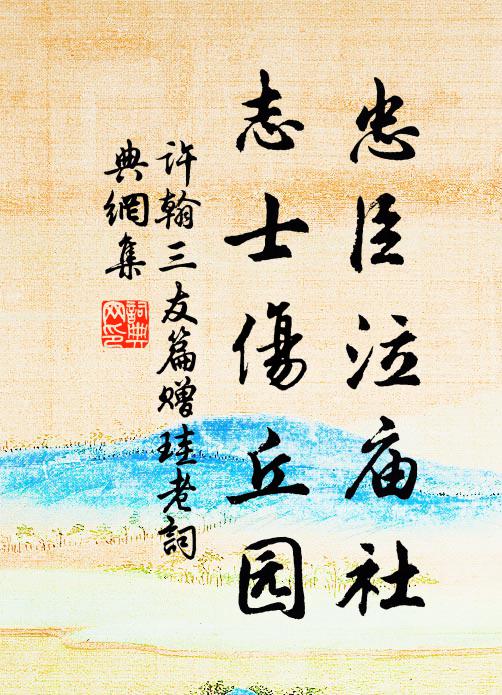 忠臣泣庙社
志士傷丘园
许翰三友篇赠珪老詞
典網集
詞典网印